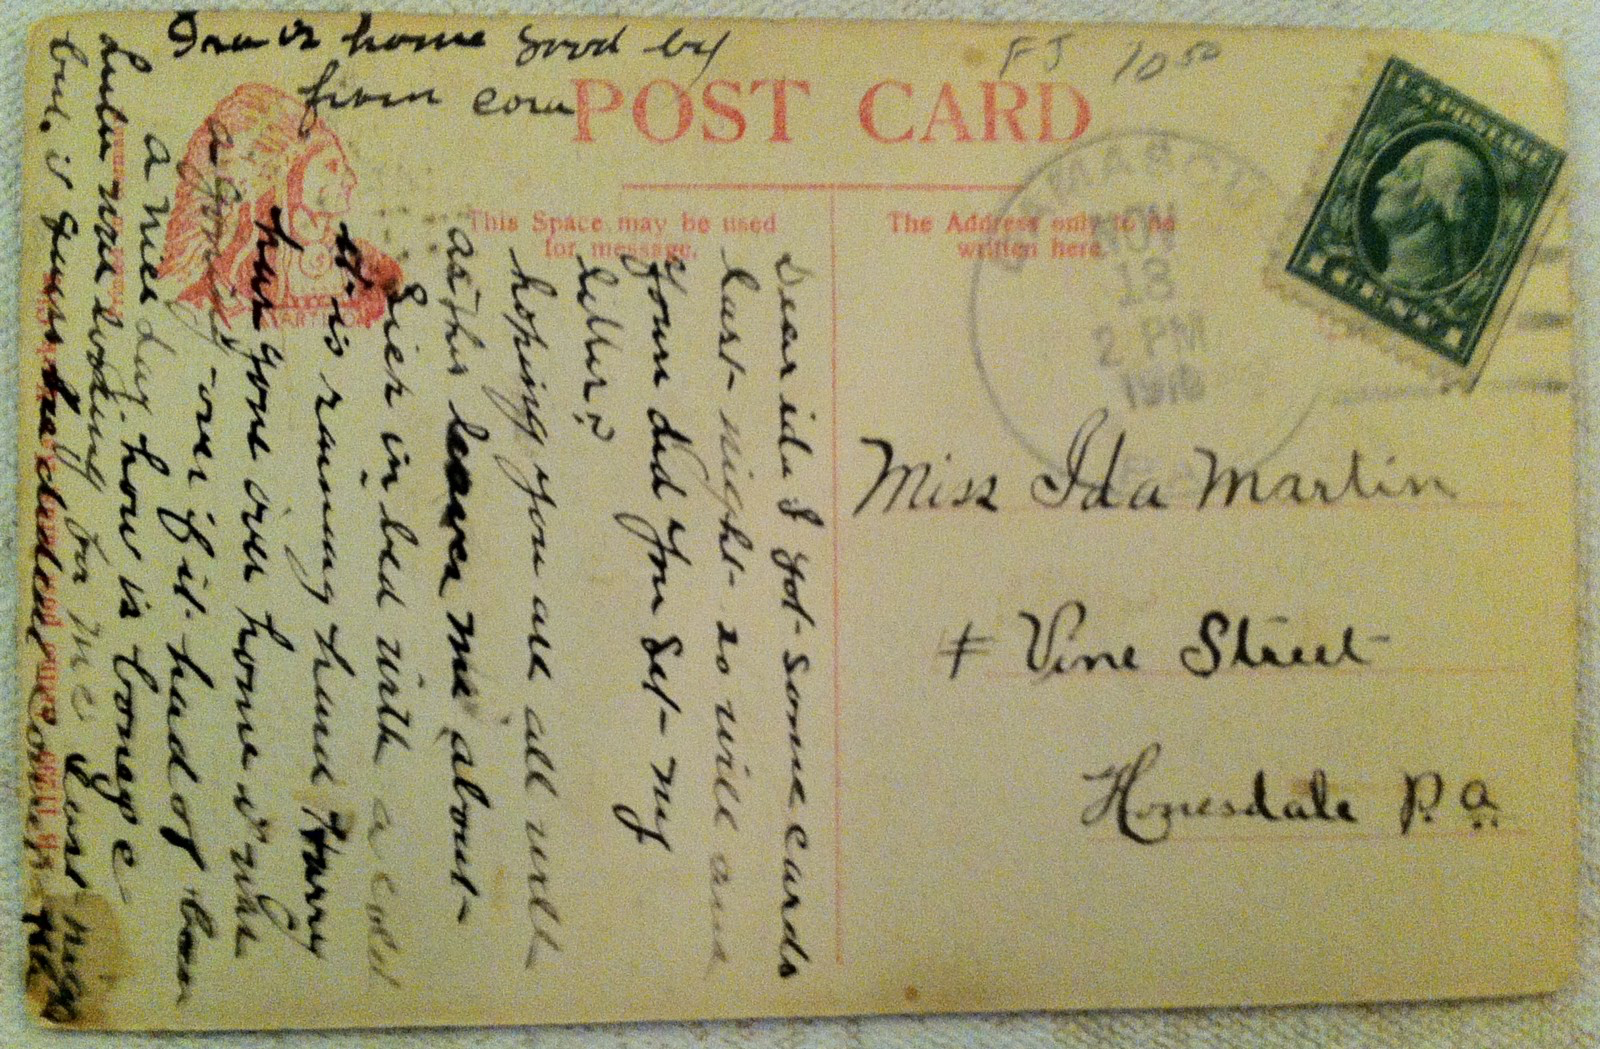 Ira is home good by
from cora
FJ 10 50
POST CARD
This Space may be used
for message.
The Address only to be
written here.
DAMASCUS
NOV
18
2 PM
U.S. POSTAGE
1 CENT 1
Miss Ida Martin
+ Vine Street
Honesdale P.a.
Dear ida I got some cards
last night so will
your did you get my
letter?
hoping you are all well
as this leaves me about
Sick in bed with a cold
it is running hard Harry
has gone over home i was
a going over if it had of been
a nice day. how is
was looking for me Sund night
but. i guess